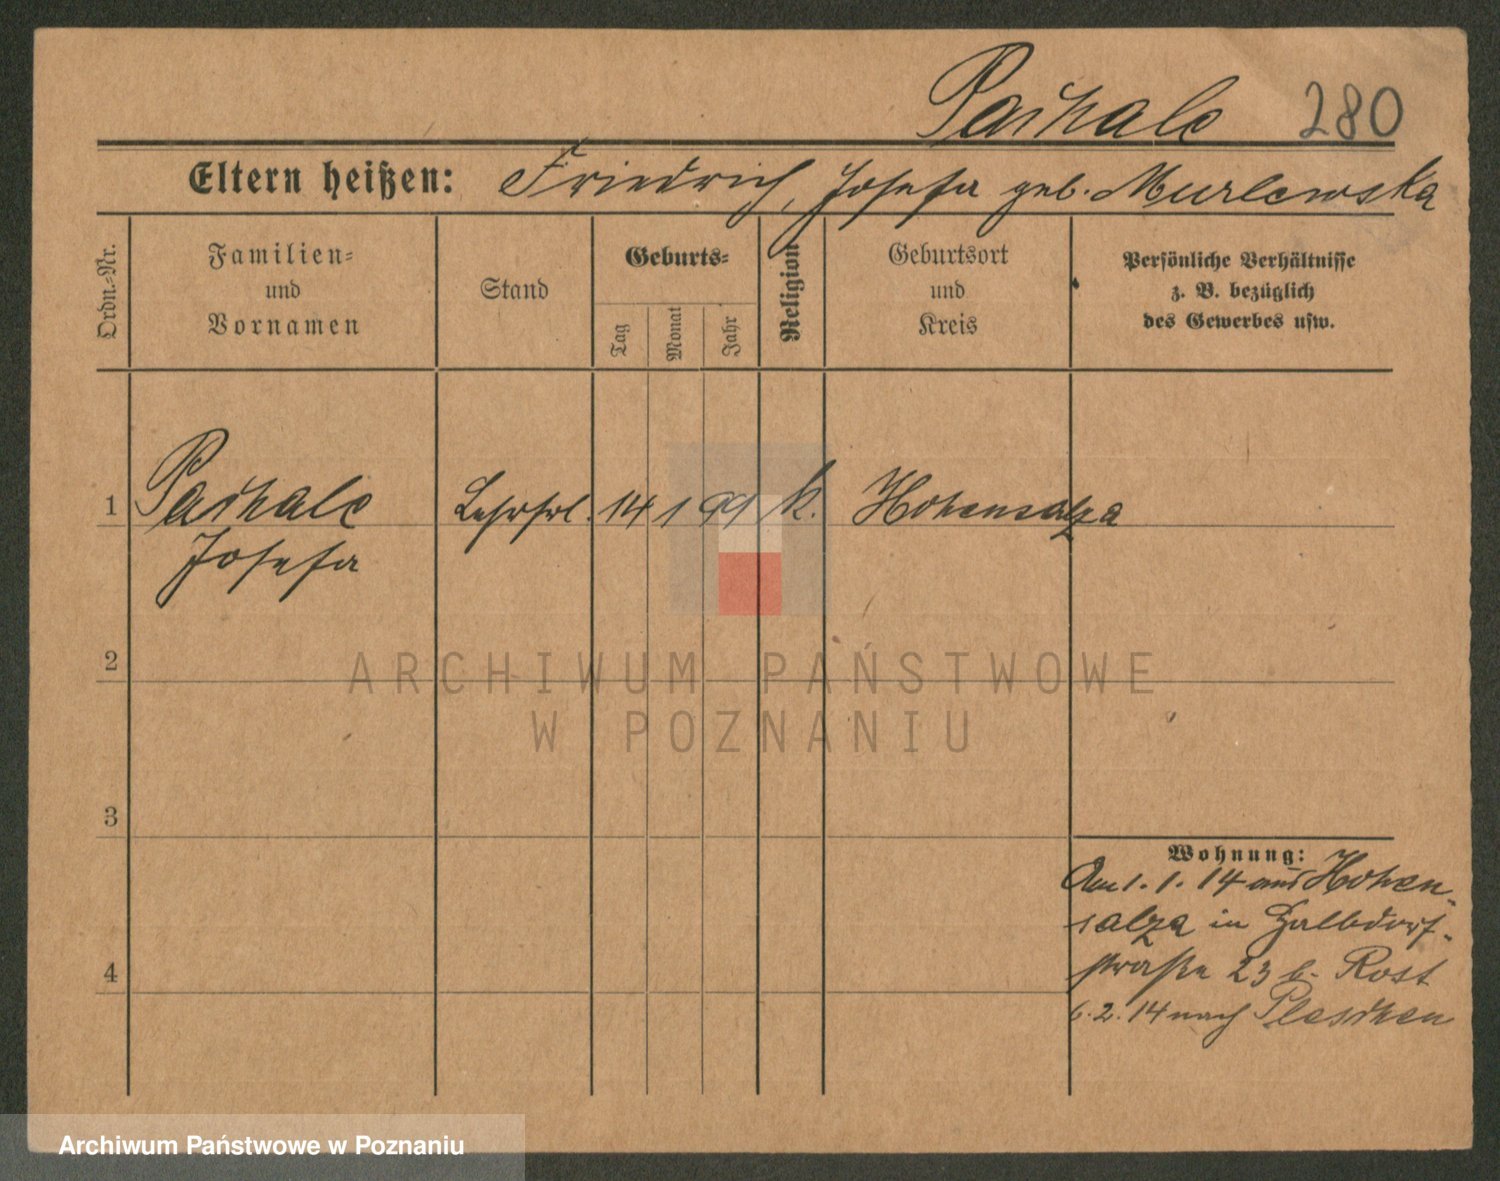 Paschale 280
Eltern heißen: Friedrich, Josefa geb. Murlewska
Ordn.-Nr.
Familien-
und
Vornamen
Stand
Geburts-
Tag
Monat
Jahr
Religion
Geburtsort
und
Kreis
Persönliche Verhältnisse
z. B. bezüglich
des Gewerbes usw.
1 Paschale Lehrfrl. 14 1 99 k. Hohensalza
Josefa
2
ARCHIWUM PAŃSTWOWE
W POZNANIU
3
Wohnung:
Am 1. 1. 14 aus Hohen-
salza in Halbdorf-
4
straße 23 b. Rost
6. 2. 14 nach Pleschen
Archiwum Państwowe w Poznaniu